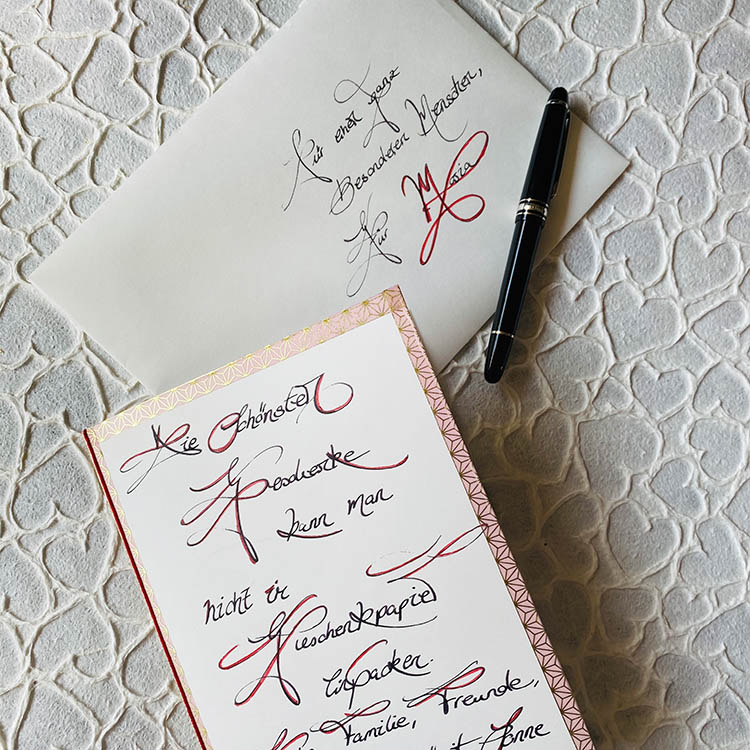 Für einen ganz
Besonderen Menschen,
Für Maria
Die Schönsten
Geschenke
kann man
nicht in
Geschenkpapier
einpacken.
Familie, Freunde,
Sonne